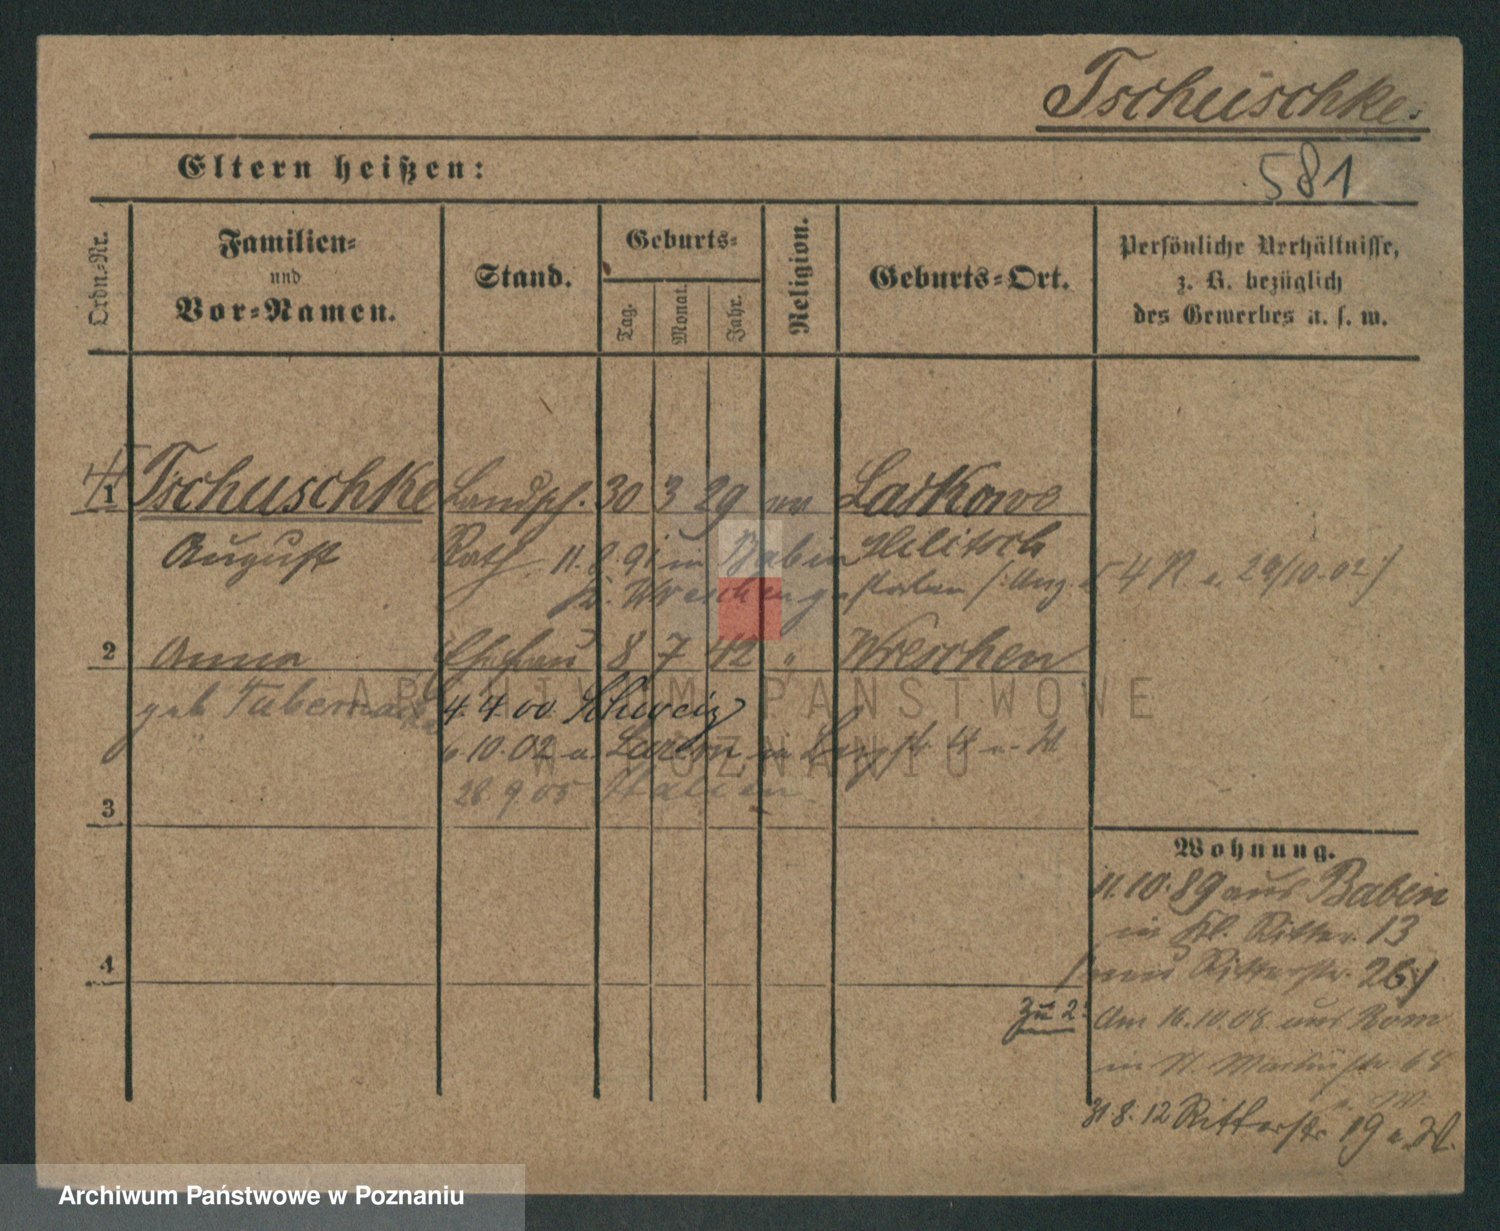 Tschuschke.
Eltern heißen:
581
Ordn.-Nr.
Familien-
und
Vor-Namen.
Stand.
Geburts-
Tag.
Monat.
Jahr.
Religion.
Geburts-Ort.
Persönliche Verhältnisse,
z. B. bezüglich
des Gewerbes u. s. w.
1 Tschuschke Landsch. 30 3 29 Laskowo
August Rath 11. 91 in Babin
Kr. Wreschen gestorben /: Anz. 4 R v. 29/10.02 /
2 Anna Ehefrau 8 7 42 " Wreschen
geb
4. 4. 00 Schweiz
10.02 a.
28 9 05 Italien
3
Wohnung.
11.10.89 aus Babin
in Kl. Ritter. 13
/ neu Ritterstr. 26 /
4
Zu 2: Am 16.10.08 aus Rom
in St. Martinstr.
31 8. 12 Ritterstr 19
ARCHIWUM PAŃSTWOWE
W POZNANIU
Archiwum Państwowe w Poznaniu